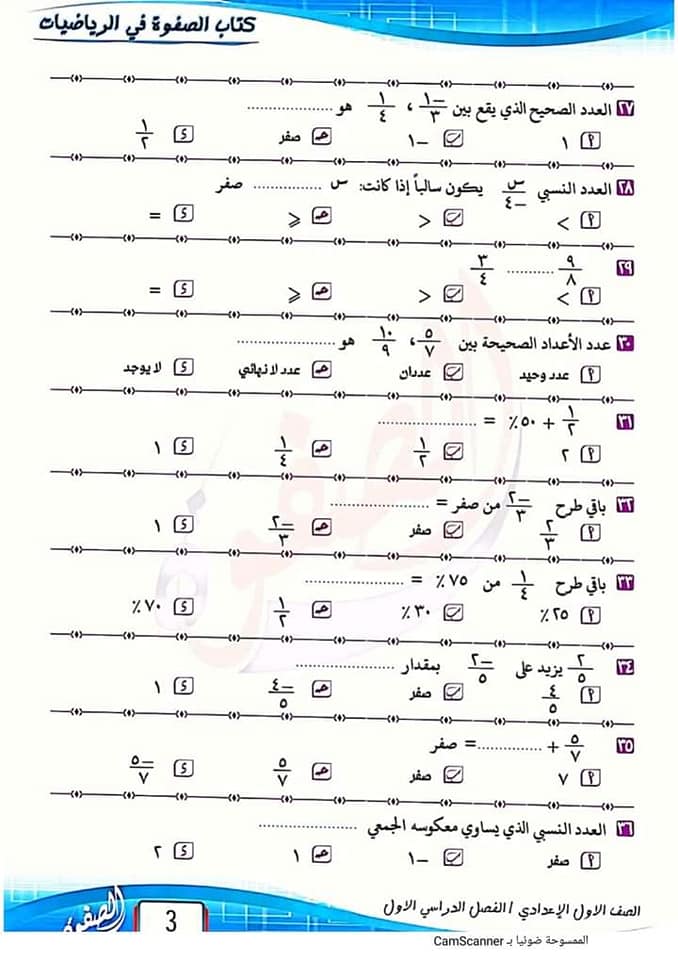 كتاب الصفوة في الرياضيات
٢٧ العدد الصحيح الذي يقع بين -١/٣ ، ١/٤ هو ....................
أ ١ ب -١ ج صفر د ١/٢
٢٨ العدد النسبي س/-٤ يكون سالباً إذا كانت: س .............. صفر
أ > ب < ج ⩾ د =
٢٩ ٩/٨ ........... ٣/٤
أ > ب < ج ⩾ د =
٣٠ عدد الأعداد الصحيحة بين ٥/٧ ، ١٠/٩ هو ........................
أ عدد وحيد ب عددان ج عدد لا نهائي د لا يوجد
٣١ ١/٢ + ٥٠٪ = ........................
أ ٢ ب ١/٢ ج ١/٤ د ١
٣٢ باقي طرح -٢/٣ من صفر = ........................
أ ٢/٣ ب صفر ج -٢/٣ د ١
٣٣ باقي طرح ١/٤ من ٧٥٪ = ........................
أ ٢٥٪ ب ٣٠٪ ج ١/٢ د ٧٠٪
٣٤ ٢/٥ يزيد على -٢/٥ بمقدار ........................
أ ٤/٥ ب صفر ج -٤/٥ د ١
٣٥ ٥/٧ + ...............= صفر
أ ٧ ب صفر ج ٥/٧ د -٥/٧
٣٦ العدد النسبي الذي يساوي معكوسه الجمعي ........................
أ صفر ب -١ ج ١ د ٢
الصف الاول الإعدادي / الفصل الدراسي الاول
3
الصفوة
الممسوحة ضوئيا بـ CamScanner